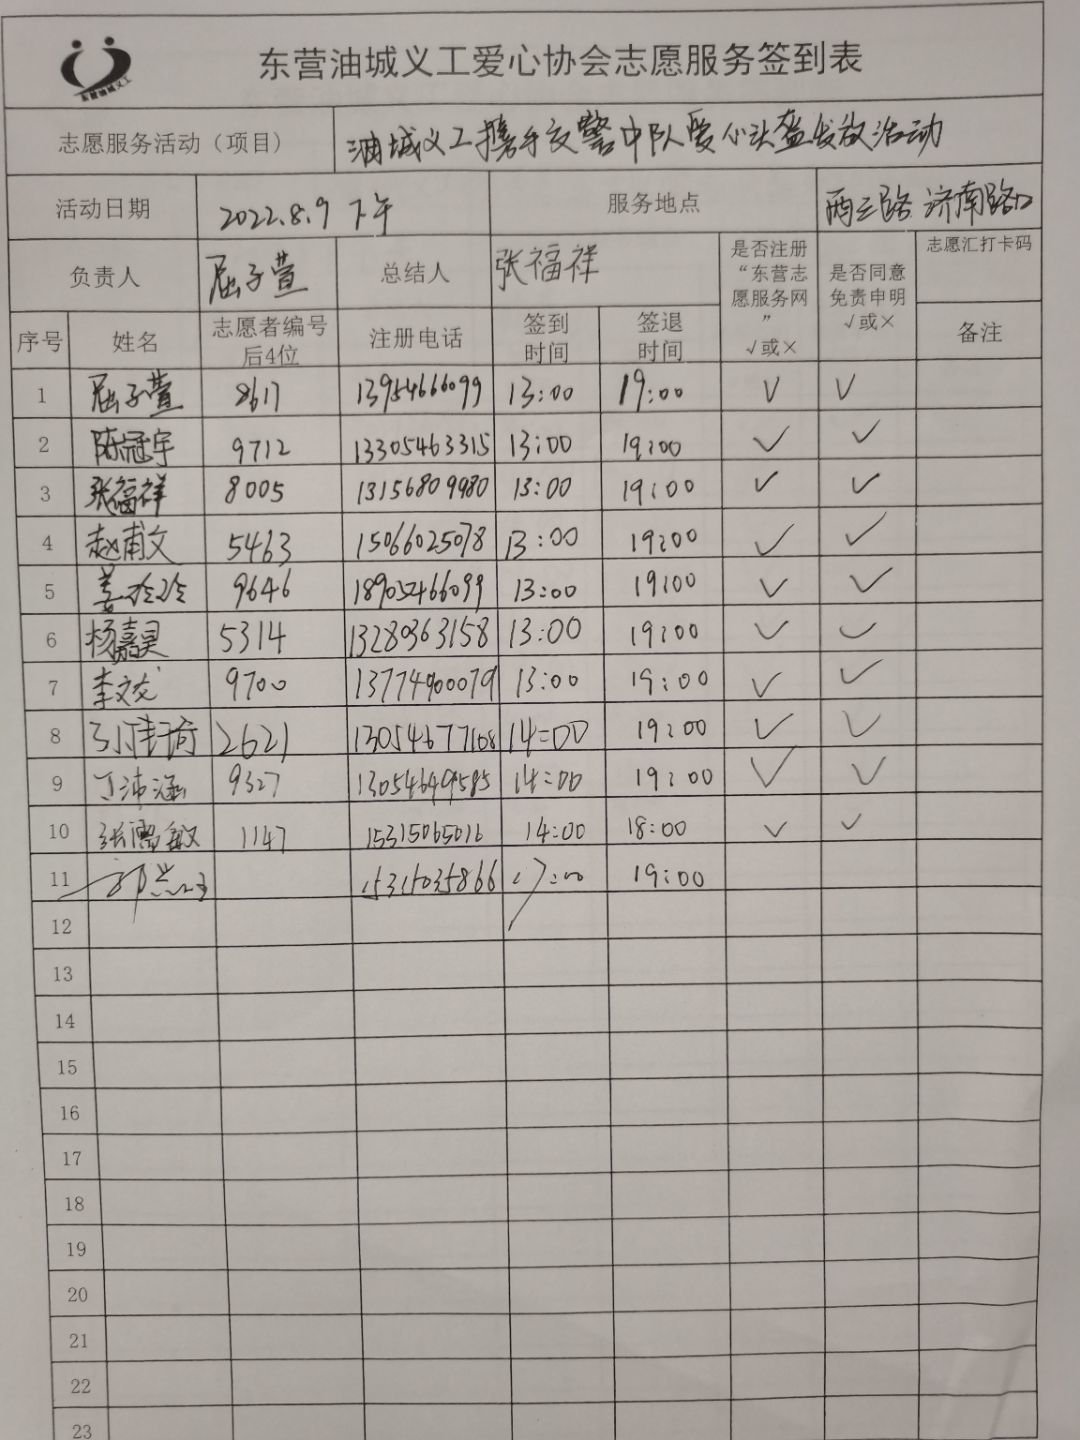 东营油城义工
东营油城义工爱心协会志愿服务签到表
志愿服务活动（项目） 油城义工携手交警中队爱心头盔发放活动
活动日期 2022.8.9 下午 服务地点 西三路 济南路口
负责人 屈子萱 总结人 张福祥 是否注册“东营志愿服务网”√或× 是否同意免责申明√或× 志愿汇打卡码
序号 姓名 志愿者编号后4位 注册电话 签到时间 签退时间 备注
1 屈子萱 8617 13954666099 13:00 19:00 √ √
2 陈冠宇 9712 13305463315 13:00 19:00 √ √
3 张福祥 8005 13156809980 13:00 19:00 √ √
4 赵甫文 5463 15066025078 13:00 19:00 √ √
5 姜玲玲 9646 18905466099 13:00 19:00 √ √
6 杨嘉昊 5314 13280363158 13:00 19:00 √ √
7 李文龙 9700 13774900079 13:00 19:00 √ √
8 2621 13054677108 14:00 19:00 √ √
9 丁沛涵 9327 13054649585 14:00 19:00 √ √
10 1147 15315065016 14:00 18:00 √ √
11 15315035866 17:00 19:00
12
13
14
15
16
17
18
19
20
21
22
23